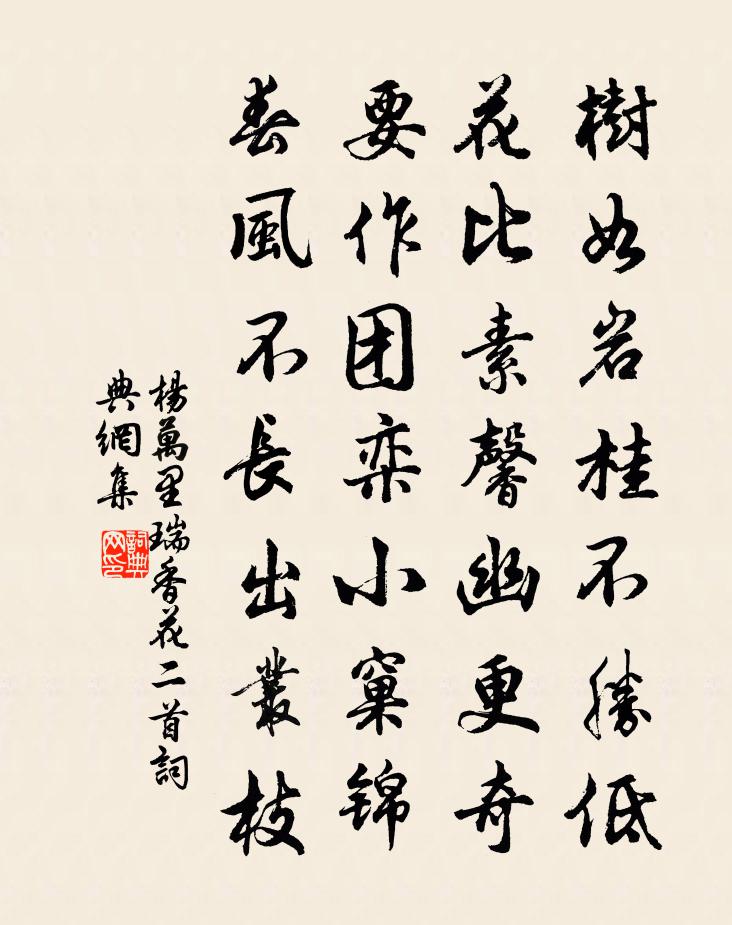 樹如岩桂不勝低
花比素馨幽更奇
要作团栾小窠錦
春風不長出叢枝
楊萬里瑞香花二首詞
典網集
詞典网印